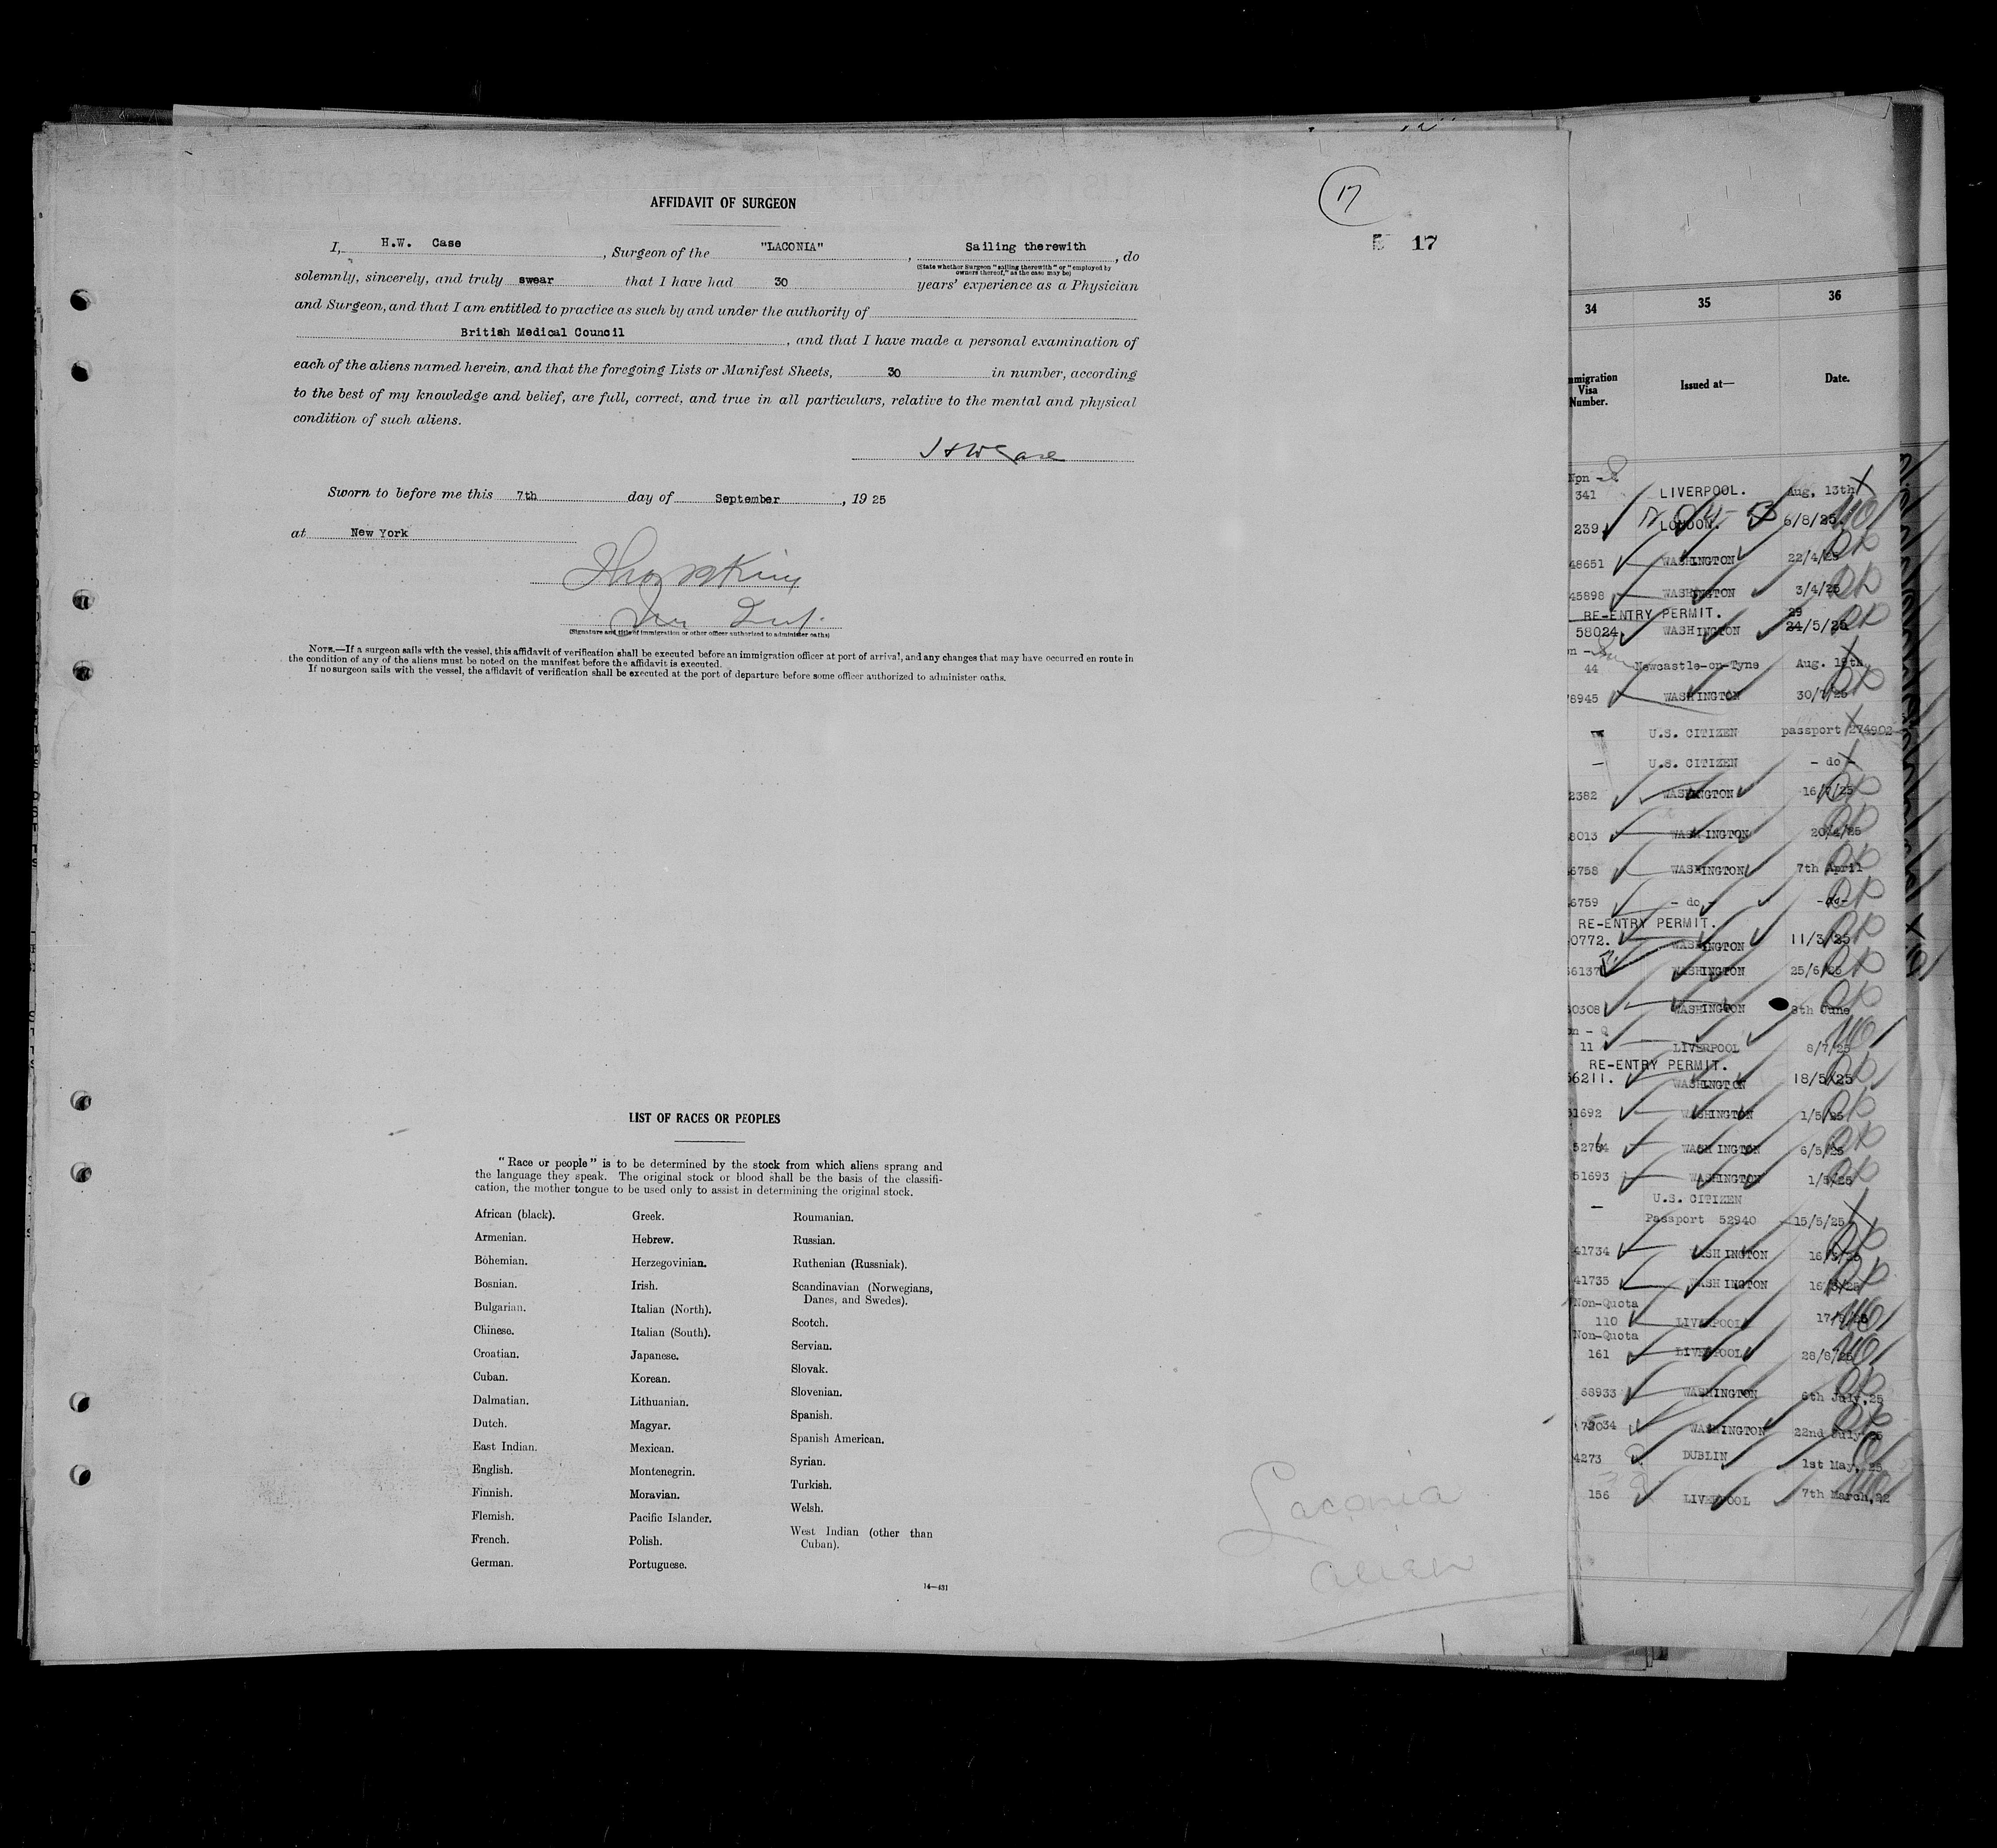 17
AFFIDAVIT OF SURGEON
17
I, H.W. Case, Surgeon of the "LACONIA", Sailing therewith, do
(State whether Surgeon "sailing therewith" or "employed by
owners thereof," as the case may be)
solemnly, sincerely, and truly swear that I have had 30 years' experience as a Physician
and Surgeon, and that I am entitled to practice as such by and under the authority of
British Medical Council, and that I have made a personal examination of
each of the aliens named herein, and that the foregoing Lists or Manifest Sheets, 30 in number, according
to the best of my knowledge and belief, are full, correct, and true in all particulars, relative to the mental and physical
condition of such aliens.
HWCase
Sworn to before me this 7th day of September, 1925
at New York
(Signature and title of immigration or other officer authorized to administer oaths)
NOTE.—If a surgeon sails with the vessel, this affidavit of verification shall be executed before an immigration officer at port of arrival, and any changes that may have occurred en route in
the condition of any of the aliens must be noted on the manifest before the affidavit is executed.
If no surgeon sails with the vessel, the affidavit of verification shall be executed at the port of departure before some officer authorized to administer oaths.
LIST OF RACES OR PEOPLES
"Race or people" is to be determined by the stock from which aliens sprang and
the language they speak. The original stock or blood shall be the basis of the classifi-
cation, the mother tongue to be used only to assist in determining the original stock.
African (black).
Armenian.
Bohemian.
Bosnian.
Bulgarian.
Chinese.
Croatian.
Cuban.
Dalmatian.
Dutch.
East Indian.
English.
Finnish.
Flemish.
French.
German.
Greek.
Hebrew.
Herzegovinian.
Irish.
Italian (North).
Italian (South).
Japanese.
Korean.
Lithuanian.
Magyar.
Mexican.
Montenegrin.
Moravian.
Pacific Islander.
Polish.
Portuguese.
Roumanian.
Russian.
Ruthenian (Russniak).
Scandinavian (Norwegians,
Danes, and Swedes).
Scotch.
Servian.
Slovak.
Slovenian.
Spanish.
Spanish American.
Syrian.
Turkish.
Welsh.
West Indian (other than
Cuban).
14—431
Laconia
alien
34 35 36
mmigration
Visa
Number.
Issued at—
Date.
341 LIVERPOOL. Aug. 13th
239 LONDON. 6/8/25.
48651 WASHINGTON 22/4/25
45898 WASHINGTON 3/4/25
RE-ENTRY PERMIT. 29
58024 WASHINGTON 24/5/25
44 Newcastle-on-Tyne Aug. 19th
78945 WASHINGTON 30/7/25
U.S. CITIZEN passport 274902
— U.S. CITIZEN - do -
2382 WASHINGTON 16/7/25
8013 WASHINGTON 20/4/25
6758 WASHINGTON 7th April
6759 - do - -do-
RE-ENTRY PERMIT.
0772. WASHINGTON 11/3/25
6137 WASHINGTON 25/6/25
0308 WASHINGTON 8th June
11 LIVERPOOL 8/7/25
RE-ENTRY PERMIT.
56211. WASHINGTON 18/5/25
51692 WASHINGTON 1/5/25
52764 WASHINGTON 6/5/25
51693 WASHINGTON 1/5/25
U.S. CITIZEN
— Passport 52940 15/5/25
41734 WASHINGTON
41735 WASHINGTON
Non-Quota
110 LIVERPOOL
Non-Quota
161 LIVERPOOL 28/8/25
68933 WASHINGTON 6th July,25
WASHINGTON 22nd July 25
4273 DUBLIN 1st May, 25
156 LIVERPOOL 7th March,22